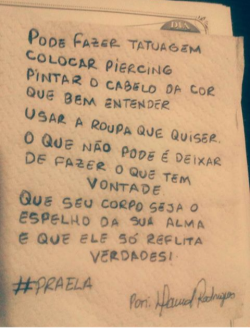 PODE FAZER TATUAGEM
COLOCAR PIERCING
PINTAR O CABELO DA COR
QUE BEM ENTENDER
USAR A ROUPA QUE QUISER.
O QUE NÃO PODE É DEIXAR
DE FAZER O QUE TEM
VONTADE.
QUE SEU CORPO SEJA O
ESPELHO DA SUA ALMA
E QUE ELE SÓ REFLITA
VERDADES!
#PRAELA
Por: Manuel Rodrigues